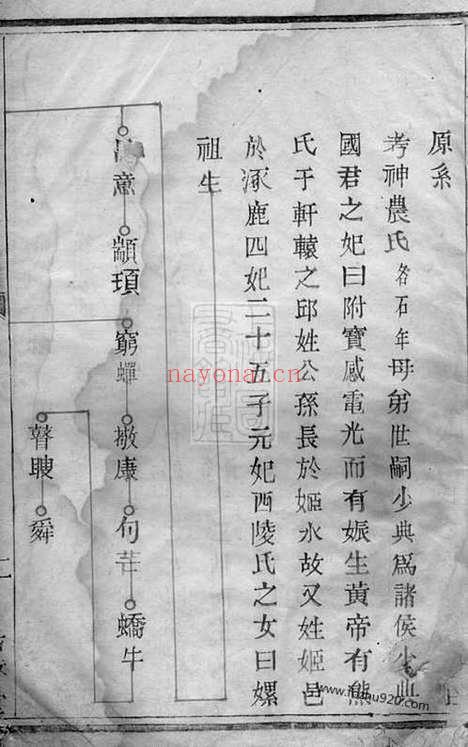 原系
考神農氏名石年母弟世嗣少典為諸侯少典
國君之妃曰附寶感電光而有娠生黃帝有熊
氏于軒轅之邱姓公孫長於姬水故又姓姬邑
於涿鹿四妃二十五子元妃西陵氏之女曰嫘
祖生
意 顓頊 窮蟬 敬康 句芒 蟜牛
瞽瞍 舜
nayona.cn